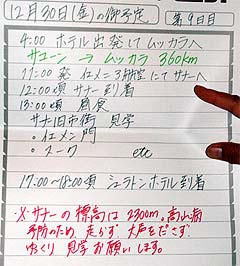 12月30日(金)の御予定 第9日目
4:00 ホテル出発してムッカラへ
サユーン → ムッカラ 360km
11:00 発 イエメン3航空にてサナーへ
12:00頃 サナー到着
13:00頃 昼食
サナ旧市街 見学
・イエメン門
・スーク etc
17:00〜18:00頃 シェラトンホテル到着
※サナーの標高は2300m。高山病
予防のため 走らず 大声をださず
ゆっくり 見学お願いします。